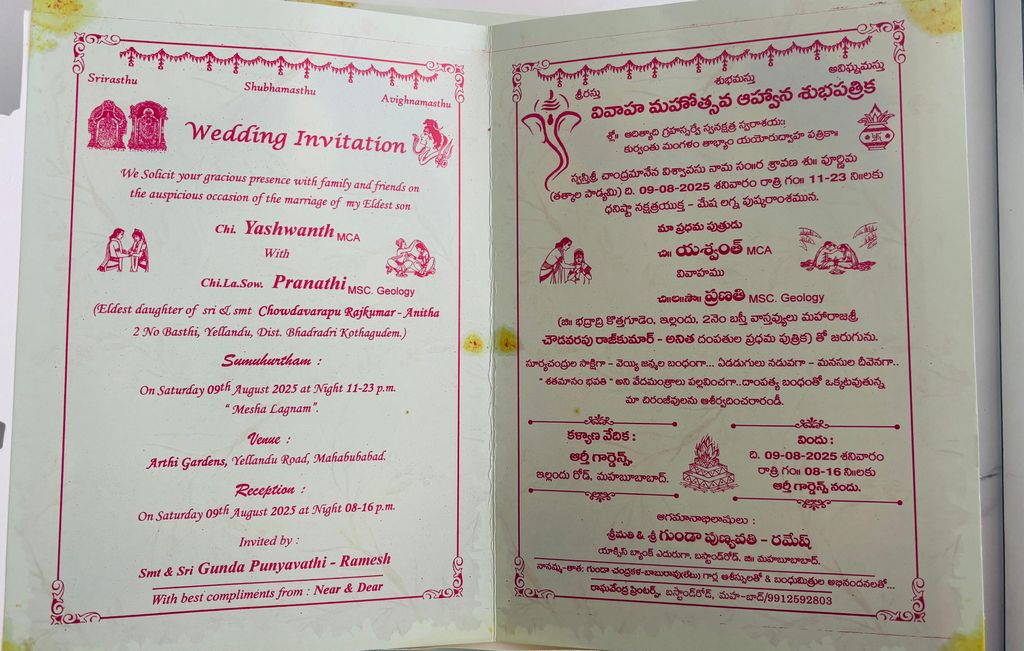 Srirasthu
Shubhamasthu
Avighnamasthu
Wedding Invitation
We Solicit your gracious presence with family and friends on
the auspicious occasion of the marriage of my Eldest son
Chi. Yashwanth MCA
With
Chi.La.Sow. Pranathi MSC. Geology
(Eldest daughter of sri & smt Chowdavarapu Rajkumar - Anitha
2 No Basthi, Yellandu, Dist. Bhadradri Kothagudem.)
Sumuhurtham :
On Saturday 09th August 2025 at Night 11-23 p.m.
" Mesha Lagnam".
Venue :
Arthi Gardens, Yellandu Road, Mahabubabad.
Reception :
On Saturday 09th August 2025 at Night 08-16 p.m.
Invited by :
Smt & Sri Gunda Punyavathi - Ramesh
With best compliments from : Near & Dear
శ్రీరస్తు
శుభమస్తు
అవిఘ్నమస్తు
వివాహ మహోత్సవ ఆహ్వాన శుభపత్రిక
శ్లో॥ ఆదిత్యాది గ్రహస్సర్వే స్వనక్షత్ర స్వరాశయః
కుర్వంతు మంగళం తాభ్యాం యయోరుద్వాహ పత్రికా॥
స్వస్తిశ్రీ చాంద్రమానేన విశ్వావసు నామ సం॥ర శ్రావణ శు॥ పూర్ణిమ
(తత్కాల పాడ్యమి) ది. 09-08-2025 శనివారం రాత్రి గం॥ 11-23 ని॥లకు
ధనిష్టా నక్షత్రయుక్త - మేష లగ్న పుష్కరాంశమున.
మా ప్రథమ పుత్రుడు
చి॥ యశ్వంత్ MCA
వివాహము
చి॥ల॥సౌ॥ ప్రణతి MSC. Geology
(జి॥ భద్రాద్రి కొత్తగూడెం. ఇల్లందు, 2నెం బస్తీ వాస్తవ్యులు మహారాజశ్రీ
చౌడవరపు రాజ్‌కుమార్ - అనిత దంపతుల ప్రథమ పుత్రిక) తో జరుగును.
సూర్యచంద్రుల సాక్షిగా - వెయ్యి జన్మల బంధంగా... ఏడడుగులు నడువగా - మనసుల దీవెనగా..
" శతమానం భవతి " అని వేదమంత్రాలు పల్లవించగా..దాంపత్య బంధంతో ఒక్కటవుతున్న
మా చిరంజీవులను ఆశీర్వదించరారండీ.
కళ్యాణ వేదిక :
ఆర్తీ గార్డెన్స్,
ఇల్లందు రోడ్, మహబూబాబాద్.
విందు :
ది. 09-08-2025 శనివారం
రాత్రి గం॥ 08-16 ని॥లకు
ఆర్తీ గార్డెన్స్ నందు.
ఆగమనాభిలాషులు :
శ్రీమతి & శ్రీ గుండా పుణ్యవతి - రమేష్
యాక్సిస్ బ్యాంక్ ఎదురుగా, బస్టాండ్‌రోడ్, జి॥ మహబూబాబాద్.
నానమ్మ-తాత: గుండా చంద్రకళ-బాబురావు(లేటు) గార్ల ఆశీస్సులతో & బంధుమిత్రుల అభినందనలతో...
రాఘవేంద్ర ప్రింటర్స్, బస్టాండ్‌రోడ్, మహ-బాద్/9912592803